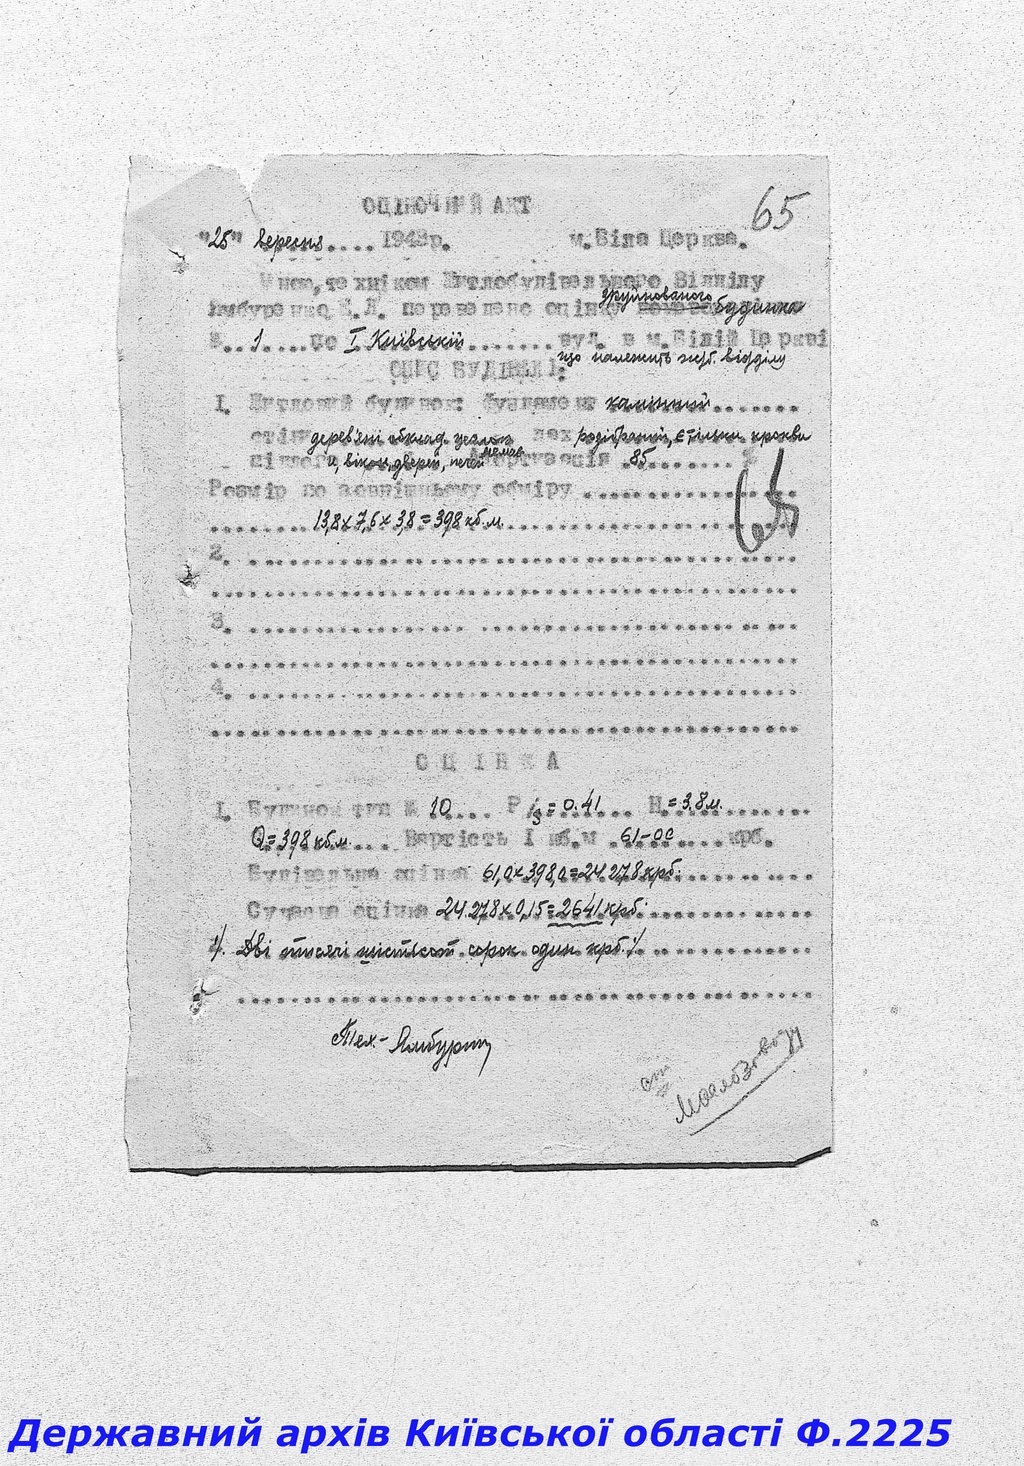 65
ОЦІНОЧНИЙ АКТ
"25" вересня.... 1943р. м.Біла Церква.
Мною, техніком Житлобудівельного Відділу
зруйнованого
Ямбуренко переведено оцінку будинка
№..1....по І Київській.......вул. в м.Білій Церкві
що належить жил. відділу
ОПИС БУДІВЛІ:
1. Житловий будинок: фундамент камінний.......
стіни дерев'яні обклад. цеглою дах розібраний, є тільки кроква
немає
підлога і, вікон, дверей, печей Амортизація .85.......%
Розмір по зовнішньому обміру ..................
65
........13,8 х 7,6 х 3,8 = 398 кб.м.
2.
3.
4.
О Ц І Н К А
1. Будинок тип № 10.... Р/s = 0.41... Н = 3.8 м.
Q = 398 кб.м.... Вартість 1 кб.м .61-00......крб.
Будівельна оцінка 61,0 х 398,0 = 24.278 крб.
Сучасна оцінка 24.278 х 0,15 = 2641 крб.
/. Дві тисячі шістсот сорок один крб. /.
Тех.-
Державний архів Київської області Ф.2225